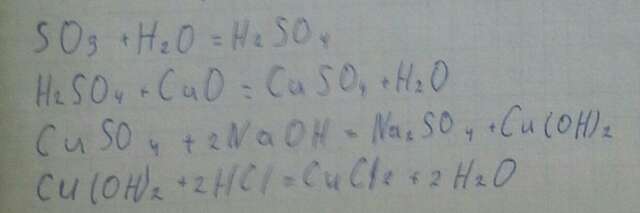 SO3 + H2O = H2SO4
H2SO4 + CuO = CuSO4 + H2O
CuSO4 + 2NaOH = Na2SO4 + Cu(OH)2
Cu(OH)2 + 2HCl = CuCl2 + 2H2O